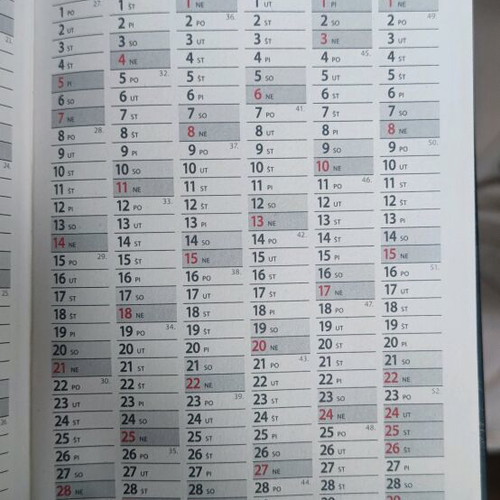 1 PO 27. 1 ŠT 1 NE 1 UT 1 PI 1 NE
2 UT 2 PI 2 PO 36. 2 ST 2 SO 2 PO 49.
3 ST 3 SO 3 UT 3 ŠT 3 NE 3 UT
4 ŠT 4 NE 4 ST 4 PI 4 PO 45. 4 ST
5 PI 5 PO 32. 5 ŠT 5 SO 5 UT 5 ŠT
6 SO 6 UT 6 PI 6 NE 6 ST 6 PI
7 NE 7 ST 7 SO 7 PO 41. 7 ŠT 7 SO
8 PO 28. 8 ŠT 8 NE 8 UT 8 PI 8 NE
9 UT 9 PI 9 PO 37. 9 ST 9 SO 9 PO 50.
10 ST 10 SO 10 UT 10 ŠT 10 NE 10 UT
11 ŠT 11 NE 11 ST 11 PI 11 PO 46. 11 ST
12 PI 12 PO 33. 12 ŠT 12 SO 12 UT 12 ŠT
13 SO 13 UT 13 PI 13 NE 13 ST 13 PI
14 NE 14 ST 14 SO 14 PO 42. 14 ŠT 14 SO
15 PO 29. 15 ŠT 15 NE 15 UT 15 PI 15 NE
16 UT 16 PI 16 PO 38. 16 ST 16 SO 16 PO 51.
17 ST 17 SO 17 UT 17 ŠT 17 NE 17 UT
18 ŠT 18 NE 18 ST 18 PI 18 PO 47. 18 ST
19 PI 19 PO 34. 19 ŠT 19 SO 19 UT 19 ŠT
20 SO 20 UT 20 PI 20 NE 20 ST 20 PI
21 NE 21 ST 21 SO 21 PO 43. 21 ŠT 21 SO
22 PO 30. 22 ŠT 22 NE 22 UT 22 PI 22 NE
23 UT 23 PI 23 PO 39. 23 ST 23 SO 23 PO 52.
24 ST 24 SO 24 UT 24 ŠT 24 NE 24 UT
25 ŠT 25 NE 25 ST 25 PI 25 PO 48. 25 ST
26 PI 26 PO 35. 26 ŠT 26 SO 26 UT 26 ŠT
27 SO 27 UT 27 PI 27 NE 27 ST 27 PI
28 NE 28 ST 28 SO 28 PO 44. 28 ŠT 28 SO